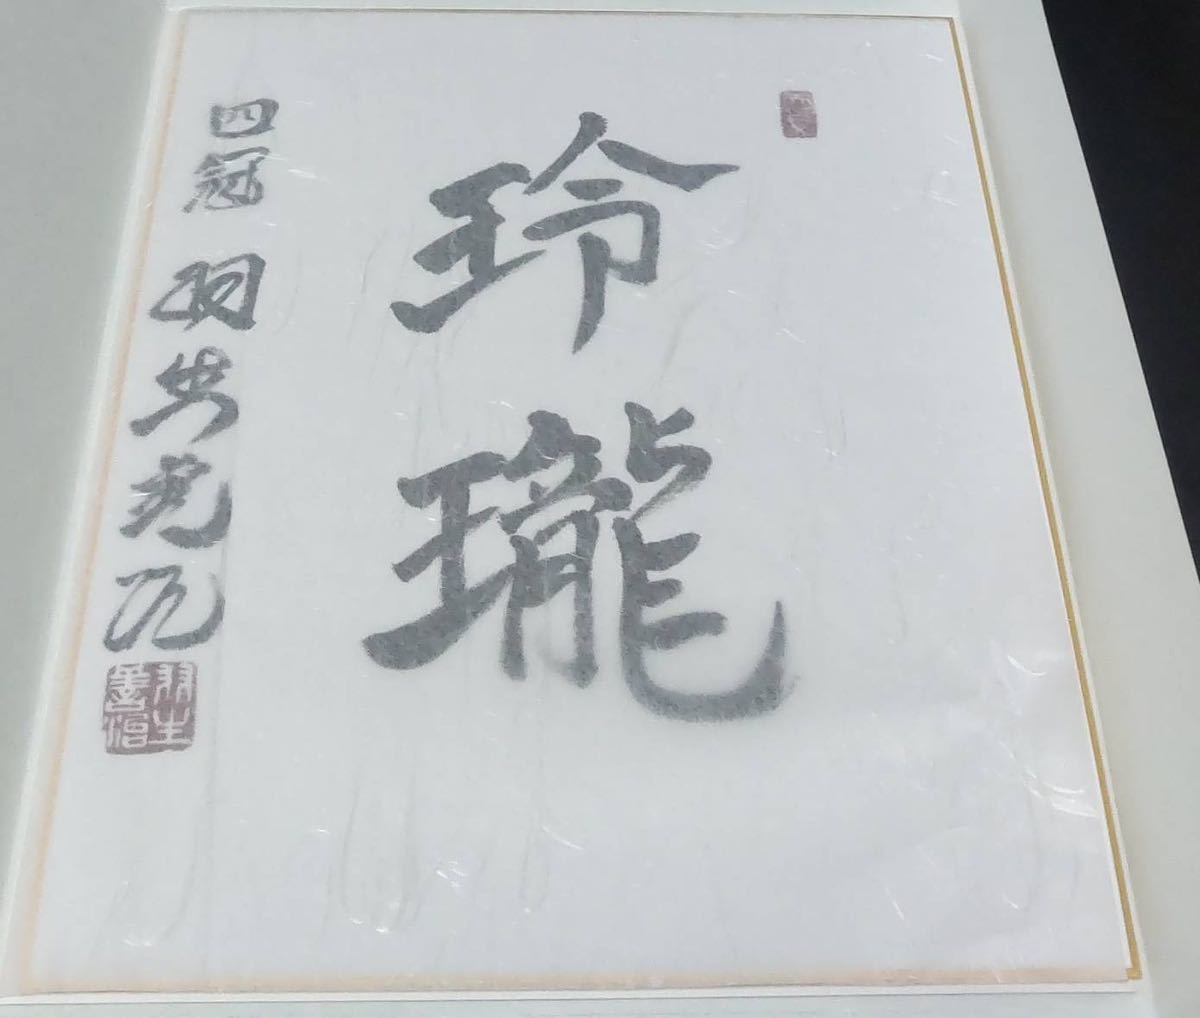 玲瓏
四冠 羽生善治
羽生善治